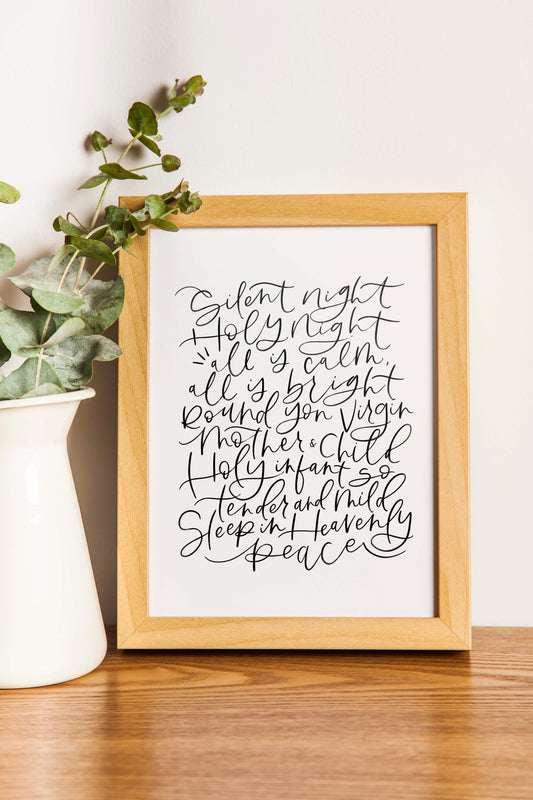 Silent night
Holy Night
all is calm,
all is bright
Round yon Virgin
Mother & Child
Holy infant so
tender and mild
Sleep in Heavenly
peace